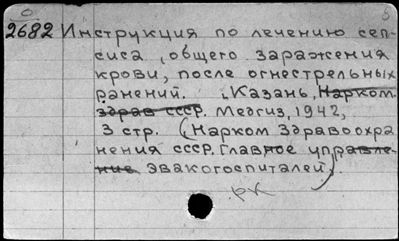 2682 Инструкция по лечению сеп-
сиса, общего заражения
крови, после огнестрельных
ранений. Казань, Нарком-
здрав СССР. Медгиз, 1942,
3 стр. (Нарком Здравоохра
нения СССР. Главное управле-
ние эвакогоспиталей).
рк